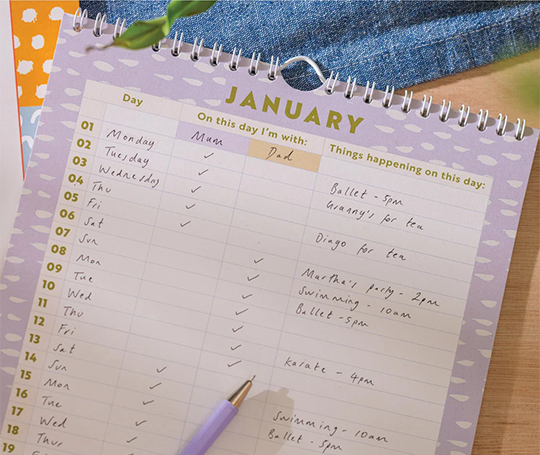 JANUARY
Day On this day I'm with: Things happening on this day:
Mum Dad
01 Monday ✓ Ballet - 5pm
02 Tuesday ✓ Granny's for tea
03 Wednesday ✓
04 Thu ✓ Diago for tea
05 Fri ✓
06 Sat ✓ Martha's party - 2pm
07 Sun ✓ Swimming - 10am
08 Mon ✓ Ballet - 5pm
09 Tue ✓
10 Wed ✓
11 Thu ✓ Karate - 4pm
12 Fri ✓
13 Sat ✓
14 Sun ✓ Swimming - 10am
15 Mon ✓ Ballet - 5pm
16 Tue ✓
17 Wed ✓
18 Thur ✓
19